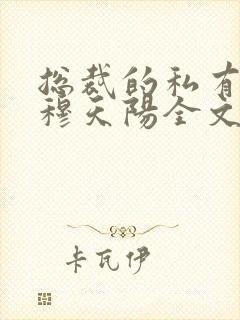 总裁的私有
穆天陽全文
卡瓦伊